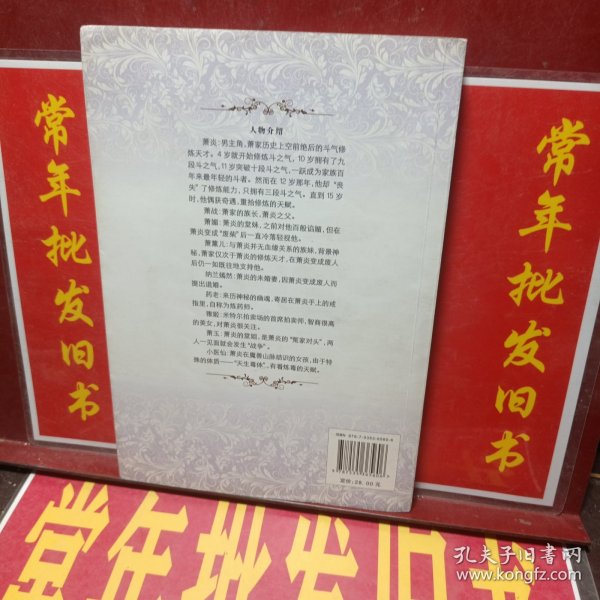 人物介绍
萧炎：男主角，萧家历史上空前绝后的斗气修
炼天才。4岁就开始修炼斗之气，10岁拥有了九
段斗之气，11岁突破十段斗之气，一跃成为家族百
年来最年轻的斗者。然而在12岁那年，他却“丧
失”了修炼能力，只拥有三段斗之气。直到15岁
时，他偶获奇遇，重拾修炼的天赋。
萧战：萧家的族长，萧炎之父。
萧媚：萧炎的堂妹，之前对他百般谄媚，但在
萧炎变成“废柴”后一直冷落轻视他。
萧薰儿：与萧炎并无血缘关系的族妹，背景神
秘，萧家仅次于萧炎的修炼天才，在萧炎变成废人
后仍一如既往地支持他。
纳兰嫣然：萧炎的未婚妻，因萧炎变成废人而
提出退婚。
药老：来历神秘的幽魂，寄居在萧炎手上的戒
指里，自称为炼药师。
雅妮：米特尔拍卖场的首席拍卖师，智商很高
的美女，对萧炎很关注。
萧玉：萧炎的堂姐，是萧炎的“冤家对头”，两
人一见面就会发生“战争”。
小医仙：萧炎在魔兽山脉结识的女孩，由于特
殊的体质——“天生毒体”，有着炼毒的天赋。
定价：28.00元
常年批发旧书
常年批发旧书
常年批发旧书
孔夫子旧书网
www.kongfz.com